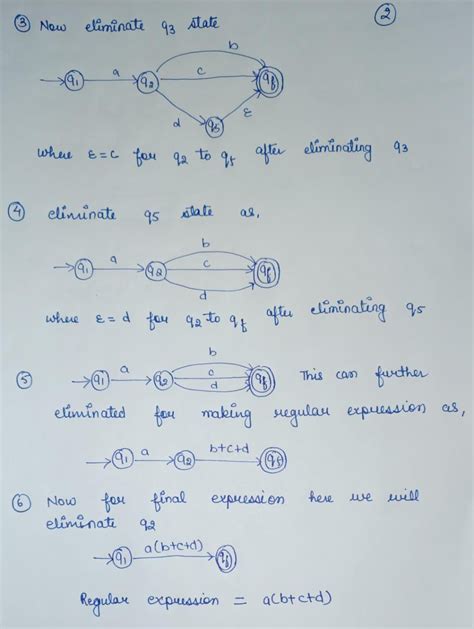 ③ Now eliminate q3 state
②
b
q1 a q2 c qf
d q5 ε
where ε=c for q2 to qf after eliminating q3
④ eliminate q5 state as,
b
q1 a q2 c qf
d
where ε=d for q2 to qf after eliminating q5
b
⑤ q1 a q2 c qf This can further
d
eliminated for making regular expression as,
q1 a q2 b+c+d qf
⑥ Now for final expression here we will
eliminate q2
q1 a(b+c+d) qf
Regular expression = a(b+c+d)